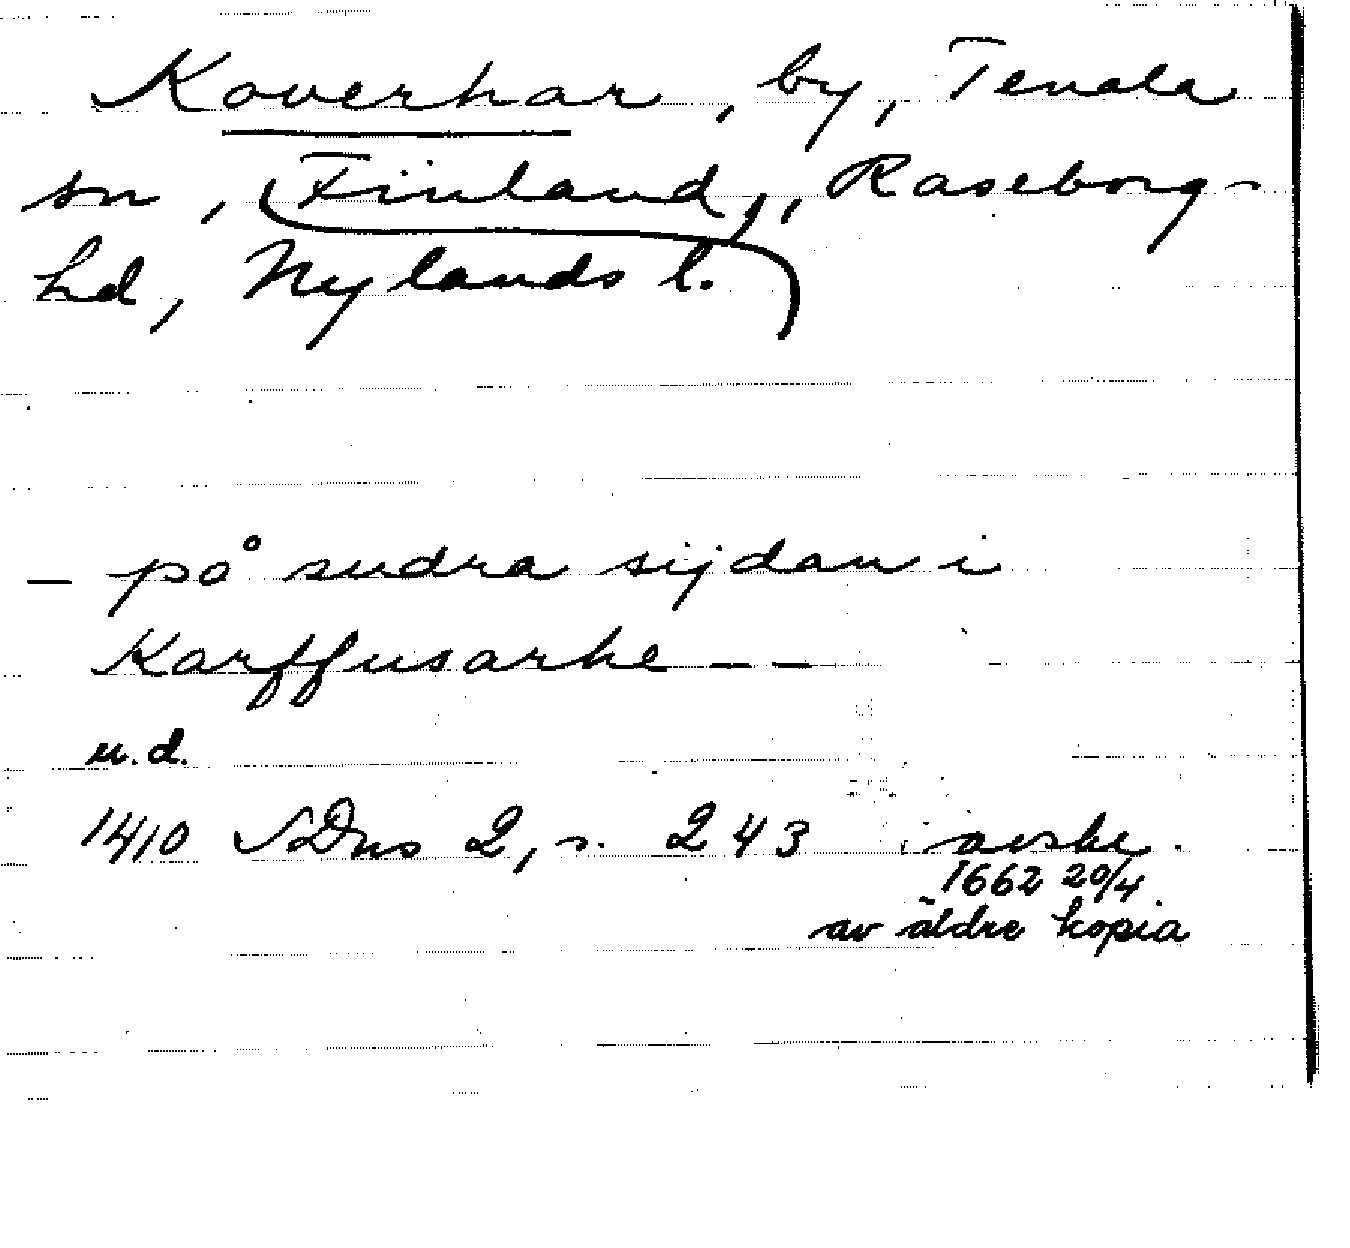 Koverhar, by, Tenala
sn, (Finland), Raseborg-
hd, Nylands l.
— på sudra sijdan i
Karffusarhe — —
u.d.
1410 SDns 2, s. 243 avskr.
1662 20/4
av äldre kopia